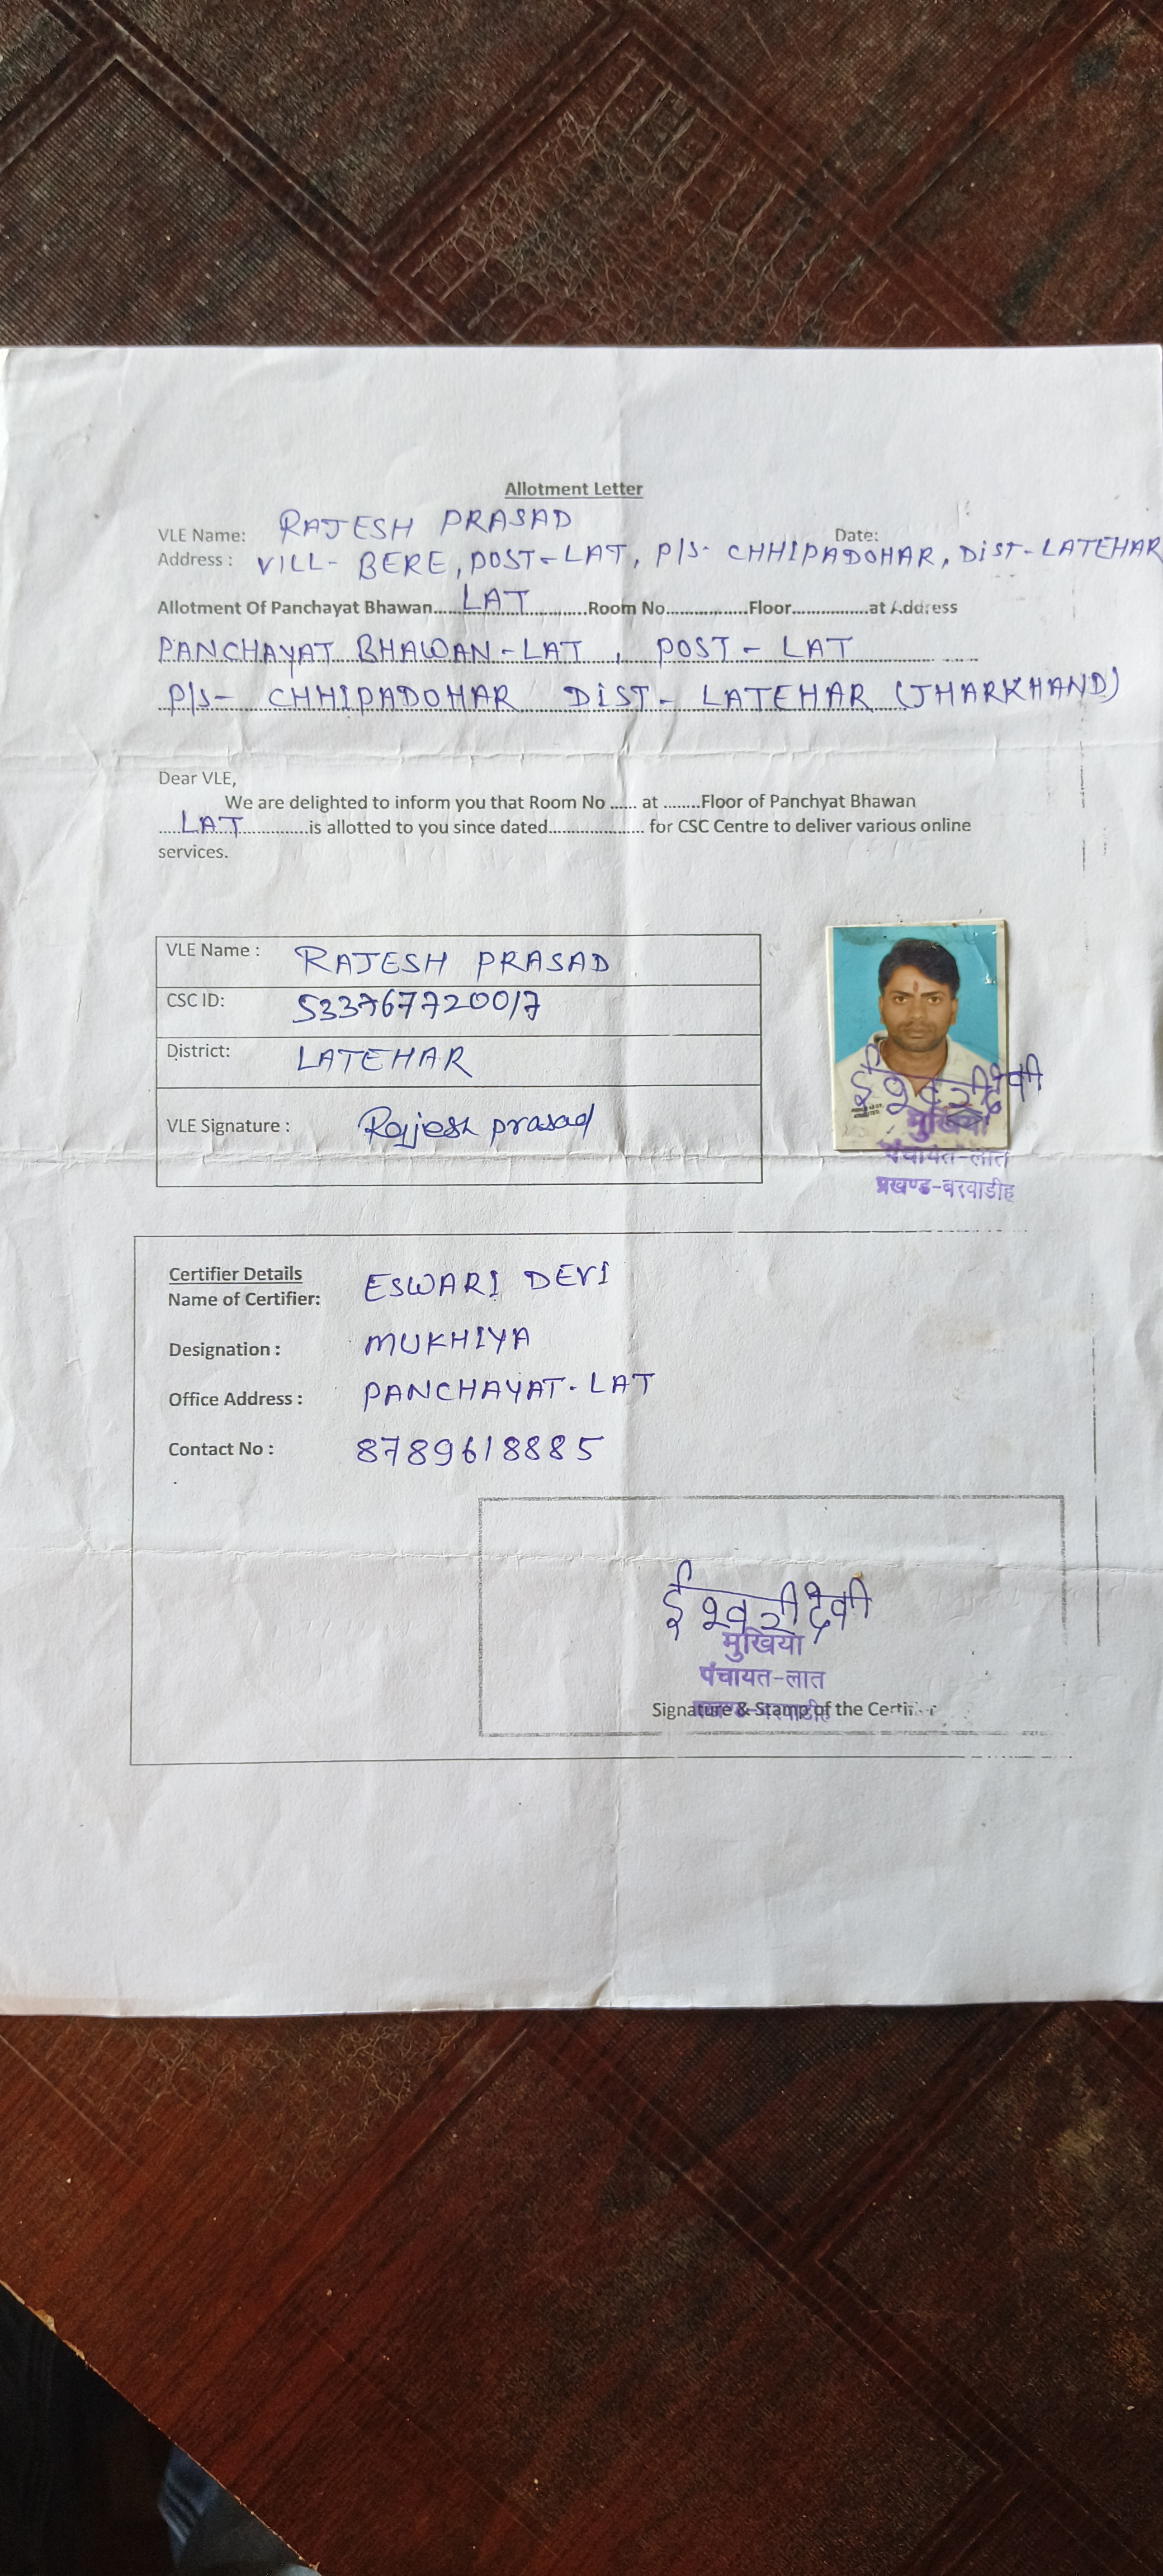 Allotment Letter
VLE Name: RAJESH PRASAD Date:
Address : VILL- BERE, POST-LAT, P/S- CHHIPADOHAR, DIST-LATEHAR
Allotment Of Panchayat Bhawan.....LAT...........Room No.................Floor................at Address
PANCHAYAT BHAWAN-LAT , POST - LAT
P/S- CHHIPADOHAR DIST- LATEHAR (JHARKHAND)
Dear VLE,
We are delighted to inform you that Room No ...... at ........Floor of Panchyat Bhawan
.....LAT................is allotted to you since dated...................... for CSC Centre to deliver various online
services.
VLE Name : RAJESH PRASAD
CSC ID: 533767720017
District: LATEHAR
VLE Signature : Rajesh prasad
ईश्वरी देवी
मुखिया
पंचायत-लात
प्रखण्ड-बरवाडीह
Certifier Details
Name of Certifier: ESWARI DEVI
Designation : MUKHIYA
Office Address : PANCHAYAT-LAT
Contact No : 8789618885
ईश्वरी देवी
मुखिया
पंचायत-लात
प्रखण्ड-बरवाडीह
Signature & Stamp of the Certifier